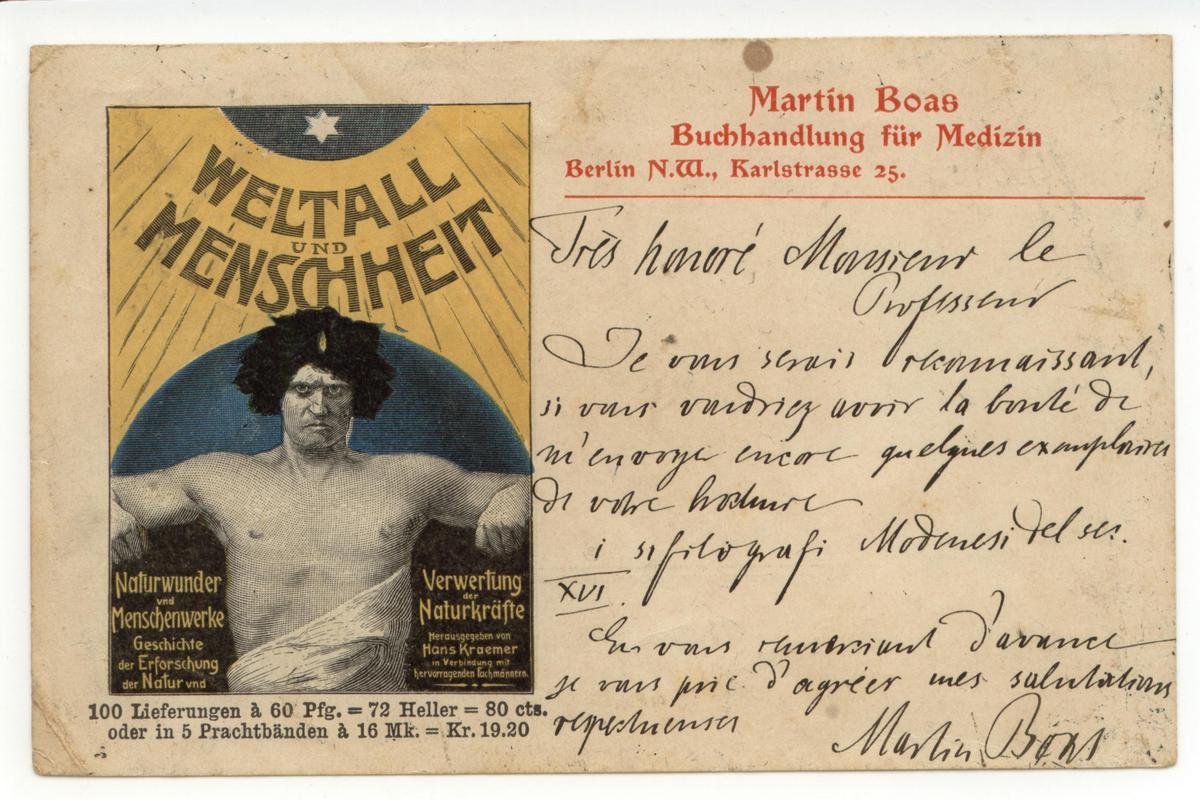 WELTALL
UND
MENSCHHEIT
Naturwunder
und
Menschenwerke
Geschichte
der Erforschung
der Natur und
Verwertung
der
Naturkräfte
Herausgegeben von
Hans Kraemer
in Verbindung mit
hervorragenden Fachmännern
100 Lieferungen à 60 Pfg. = 72 Heller = 80 cts.
oder in 5 Prachtbänden à 16 Mk. = Kr. 19.20
Martin Boas
Buchhandlung für Medizin
Berlin N.W., Karlstrasse 25.
Très honoré Monsieur le
Professeur
Je vous serais reconnaissant,
si vous voudriez avoir la bonté de
m'envoye encore quelques exemplaires
de votre brochure
i sifilografi Modenesi del sec.
XVI.
En vous remerciant d'avance
je vous prie d'agréer mes salutations
respectueuses
Martin Boas